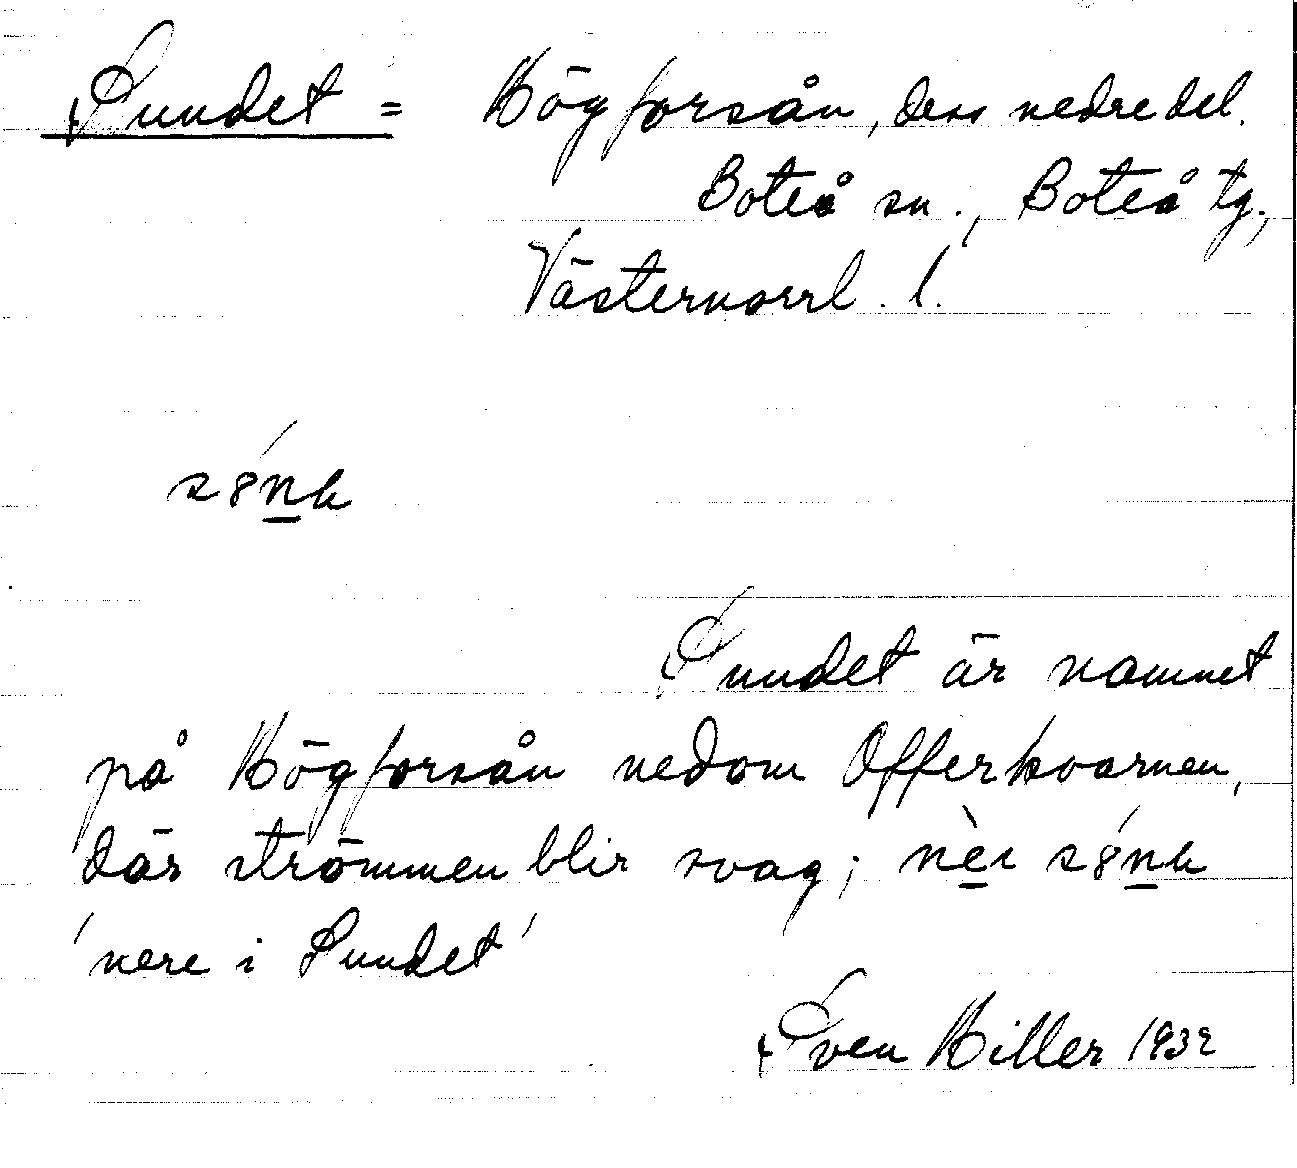 Sundet = Högforsån, dess nedre del.
Boteå sn., Boteå tg.,
Västernorrl. l.
s8́n̲h
Sundet är namnet
på Högforsån nedom Offerkvarnen,
där strömmen blir svag; nè̲ı s8́n̲h
'nere i Sundet'
Sven Hiller 1932